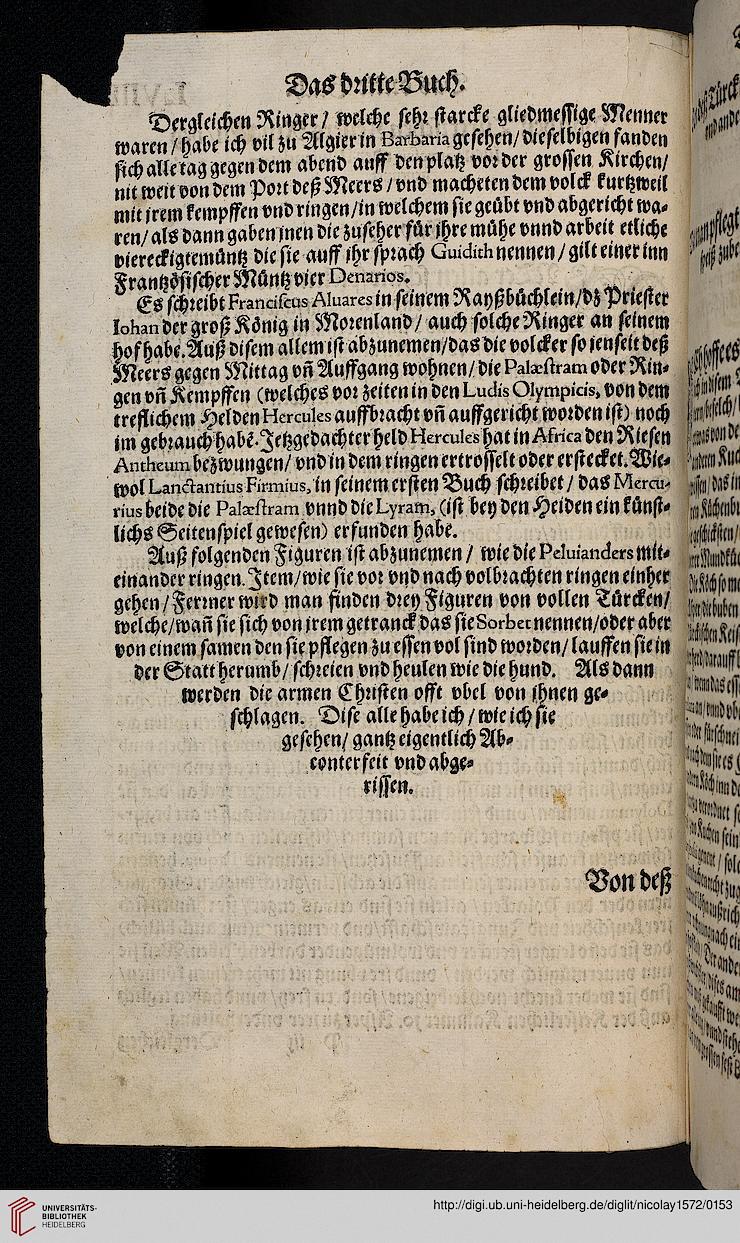 Das dritte Buch.
Dergleichen Ringer / welche sehr starcke gliedmessige Menner
waren / habe ich vil zu Algier in Barbaria gesehen / dieselbigen fanden
sich alle tag gegen dem abend auff den platz vor der grossen Kirchen /
nit weit von dem Port deß Meers / vnd macheten dem volck kurtzweil
mit jrem kempffen vnd ringen / in welchem sie geübt vnd abgericht wa-
ren / als dann gaben jnen die zuseher für jhre mühe vnnd arbeit etliche
viereckigte müntz die sie auff ihr sprach Guidith nennen / gilt einer inn
Frantzösischer Müntz vier Denarios.
Es schreibt Franciscus Aluares in seinem Rayßbüchlein / dz Priester
Iohan der groß König in Morenland / auch solche Ringer an seinem
hof habe. Auß disem allem ist abzunemen / das die volcker so jenseit deß
Meers gegen Mittag vñ Auffgang wohnen / die Palæstram oder Rin-
gen vñ Kempffen (welches vor zeiten in den Ludis Olympicis, von dem
treflichem Helden Hercules auffbracht vñ auffgericht worden ist) noch
im gebrauch habē. Jetzgedachter held Hercules hat in Africa den Riesen
Antheum bezwungen / vnd in dem ringen ertrosselt oder erstecket. Wie-
wol Lanctantius Firmius, in seinem ersten Buch schreibet / das Mercu-
rius beide die Palæstram vnnd die Lyram, (ist bey den Heiden ein künst-
lichs Seitenspiel gewesen) erfunden habe.
Auß folgenden Figuren ist abzunemen / wie die Peluianders mit-
einander ringen. Item / wie sie vor vnd nach volbrachten ringen einher
gehen / Ferrner wird man finden drey Figuren von vollen Türcken /
welche / wañ sie sich von jrem getranck das sie Sorbet nennen / oder aber
von einem samen den sie pflegen zu essen vol sind worden / lauffen sie in
der Statt herumb / schreien vnd heulen wie die hund. Als dann
werden die armen Christen offt vbel von jhnen ge-
schlagen. Dise alle habe ich / wie ich sie
gesehen / gantz eigentlich Ab-
conterfeit vnd abge-
rissen.
Von deß
UNIVERSITÄTS-
BIBLIOTHEK
HEIDELBERG
http://digi.ub.uni-heidelberg.de/diglit/nicolay1572/0153